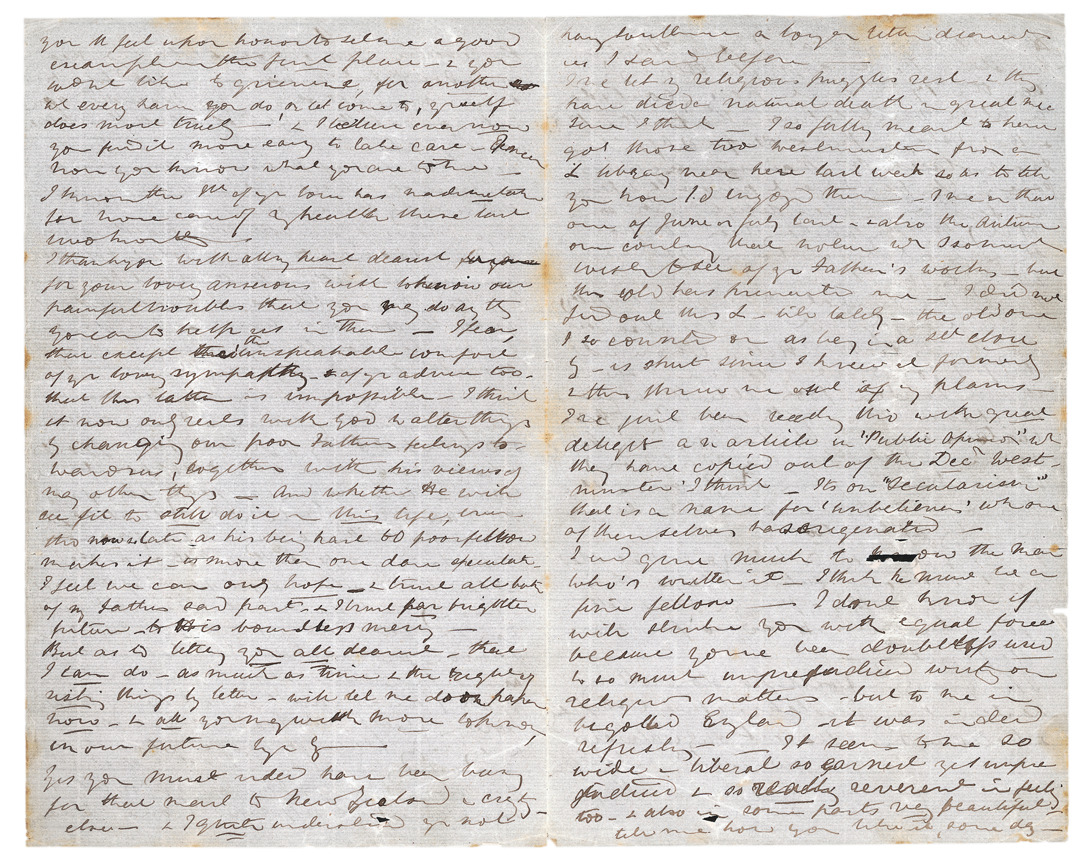 you'll feel upon honor to set me a good
example in the first place - & you
wont like to grieve me, for another
of every harm you do or let come to, yrself
does most truly - ! & I believe even now
you find it more easy to take care - 
now you know what you are to me -
I know the of yr love has made me take
far more care of my health these last
two months -
I thank you with all my heart dearest
for your loving anxious wish to know our
painful troubles that you may do anythg
you can to help us in them - I fear
that except the unspeakable comfort
of yr loving sympathy - & of yr advice too -
that this latter is impossible - I think
it now only rests with God to alter things
by changing our poor Father's feelings to-
wards us, together with his views of
many other thgs - And whether He will
see fit to still do it in this life, even
tho' now so late as his being past 60 poor fellow
makes it - is more than one dare speculate
I feel we can only hope - & trust all both
of my father's sad past - & I trust far brighter
future - to His boundless mercy -
But as to telling you all dearest - that
I can do - as much as time & the
things by letter - will let me do on paper
now - & all you may wish more to know,
in our future by & by
Yes you must indeed have been busy
for that mail to New Zealand &
 - & I quite understand yr not
having written me a longer letter dearest
as I said before -
I've let my religious puzzles rest - & they
have died a natural death in great mea
sure I think - I so fully meant to have
got those two Westminsters from a
L library near here last week so as to tell
you how I'd enjoyed them - I mean that
one of June or July last - & also the Autumn
one containg that notice wh I so much
wish to see of yr Father's works - but
this cold has prevented me - I did not
find out this L - till lately - the old one
I so counted on as being in a St close
by - is shut since I knew it formerly
& this threw me out of my plans -
I've just been readg tho' with great
delight an article in "Public Opinion" wh
they have copied out of the Decr West-
minster I think - Its on "Secularism"
that is a name for 'unbelievers' wh one
of themselves has originated -
I wd give much to know the man
who's written it - I think he must be a
fine fellow - I dont know if it
will strike you with equal force
because you've been doubtless used
to so much unprejudiced writg on
religious matters - but to me in
bigotted England - it was indeed
refreshg - It seems to me so
wide & liberal so earnest yet unpre
judiced & so really reverent in feelg
too - & also in some parts very beautiful -
tell me how you like it, some day -